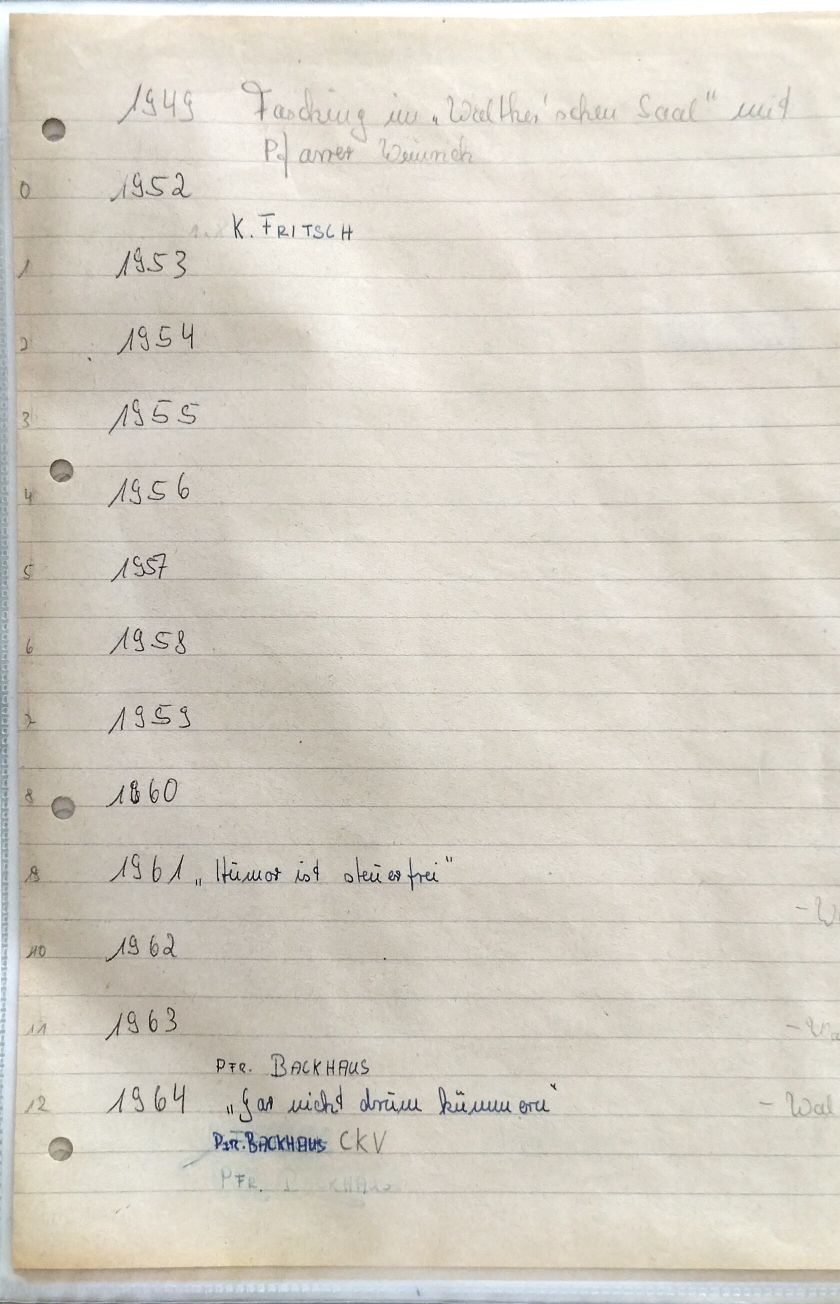 1949 Fasching im „Walther'schen Saal" mit
Pfarrer Weinrich
0 1952
K. FRITSCH
1 1953
2 1954
3 1955
4 1956
5 1957
6 1958
7 1959
8 1860
9 1961 „Humor ist steuerfrei"
10 1962
11 1963
PFR. BACKHAUS
12 1964 „Gar nicht drum kümmern" - Wal
PFR. BACKHAUS CKV
PFR. BACKHAUS